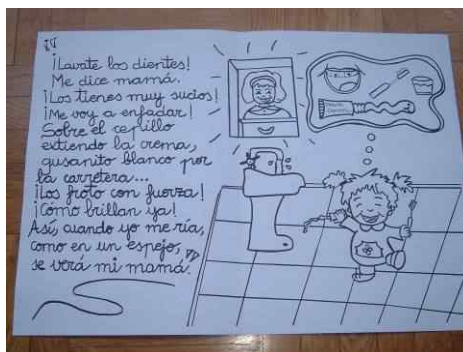 ¡Lavate los dientes!
Me dice mamá.
¡Los tienes muy sucios!
¡Me voy a enfadar!
Sobre el cepillo
extiendo la crema,
gusanito blanco por
la carretera...
¡Los froto con fuerza!
¡Cómo brillan ya!
Así, cuando yo me ría,
como en un espejo,
se verá mi mamá.